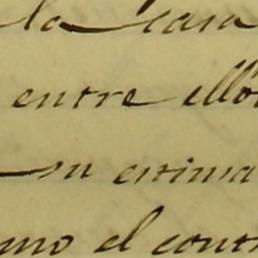 la casa
entre ello
su estima
mo el contr